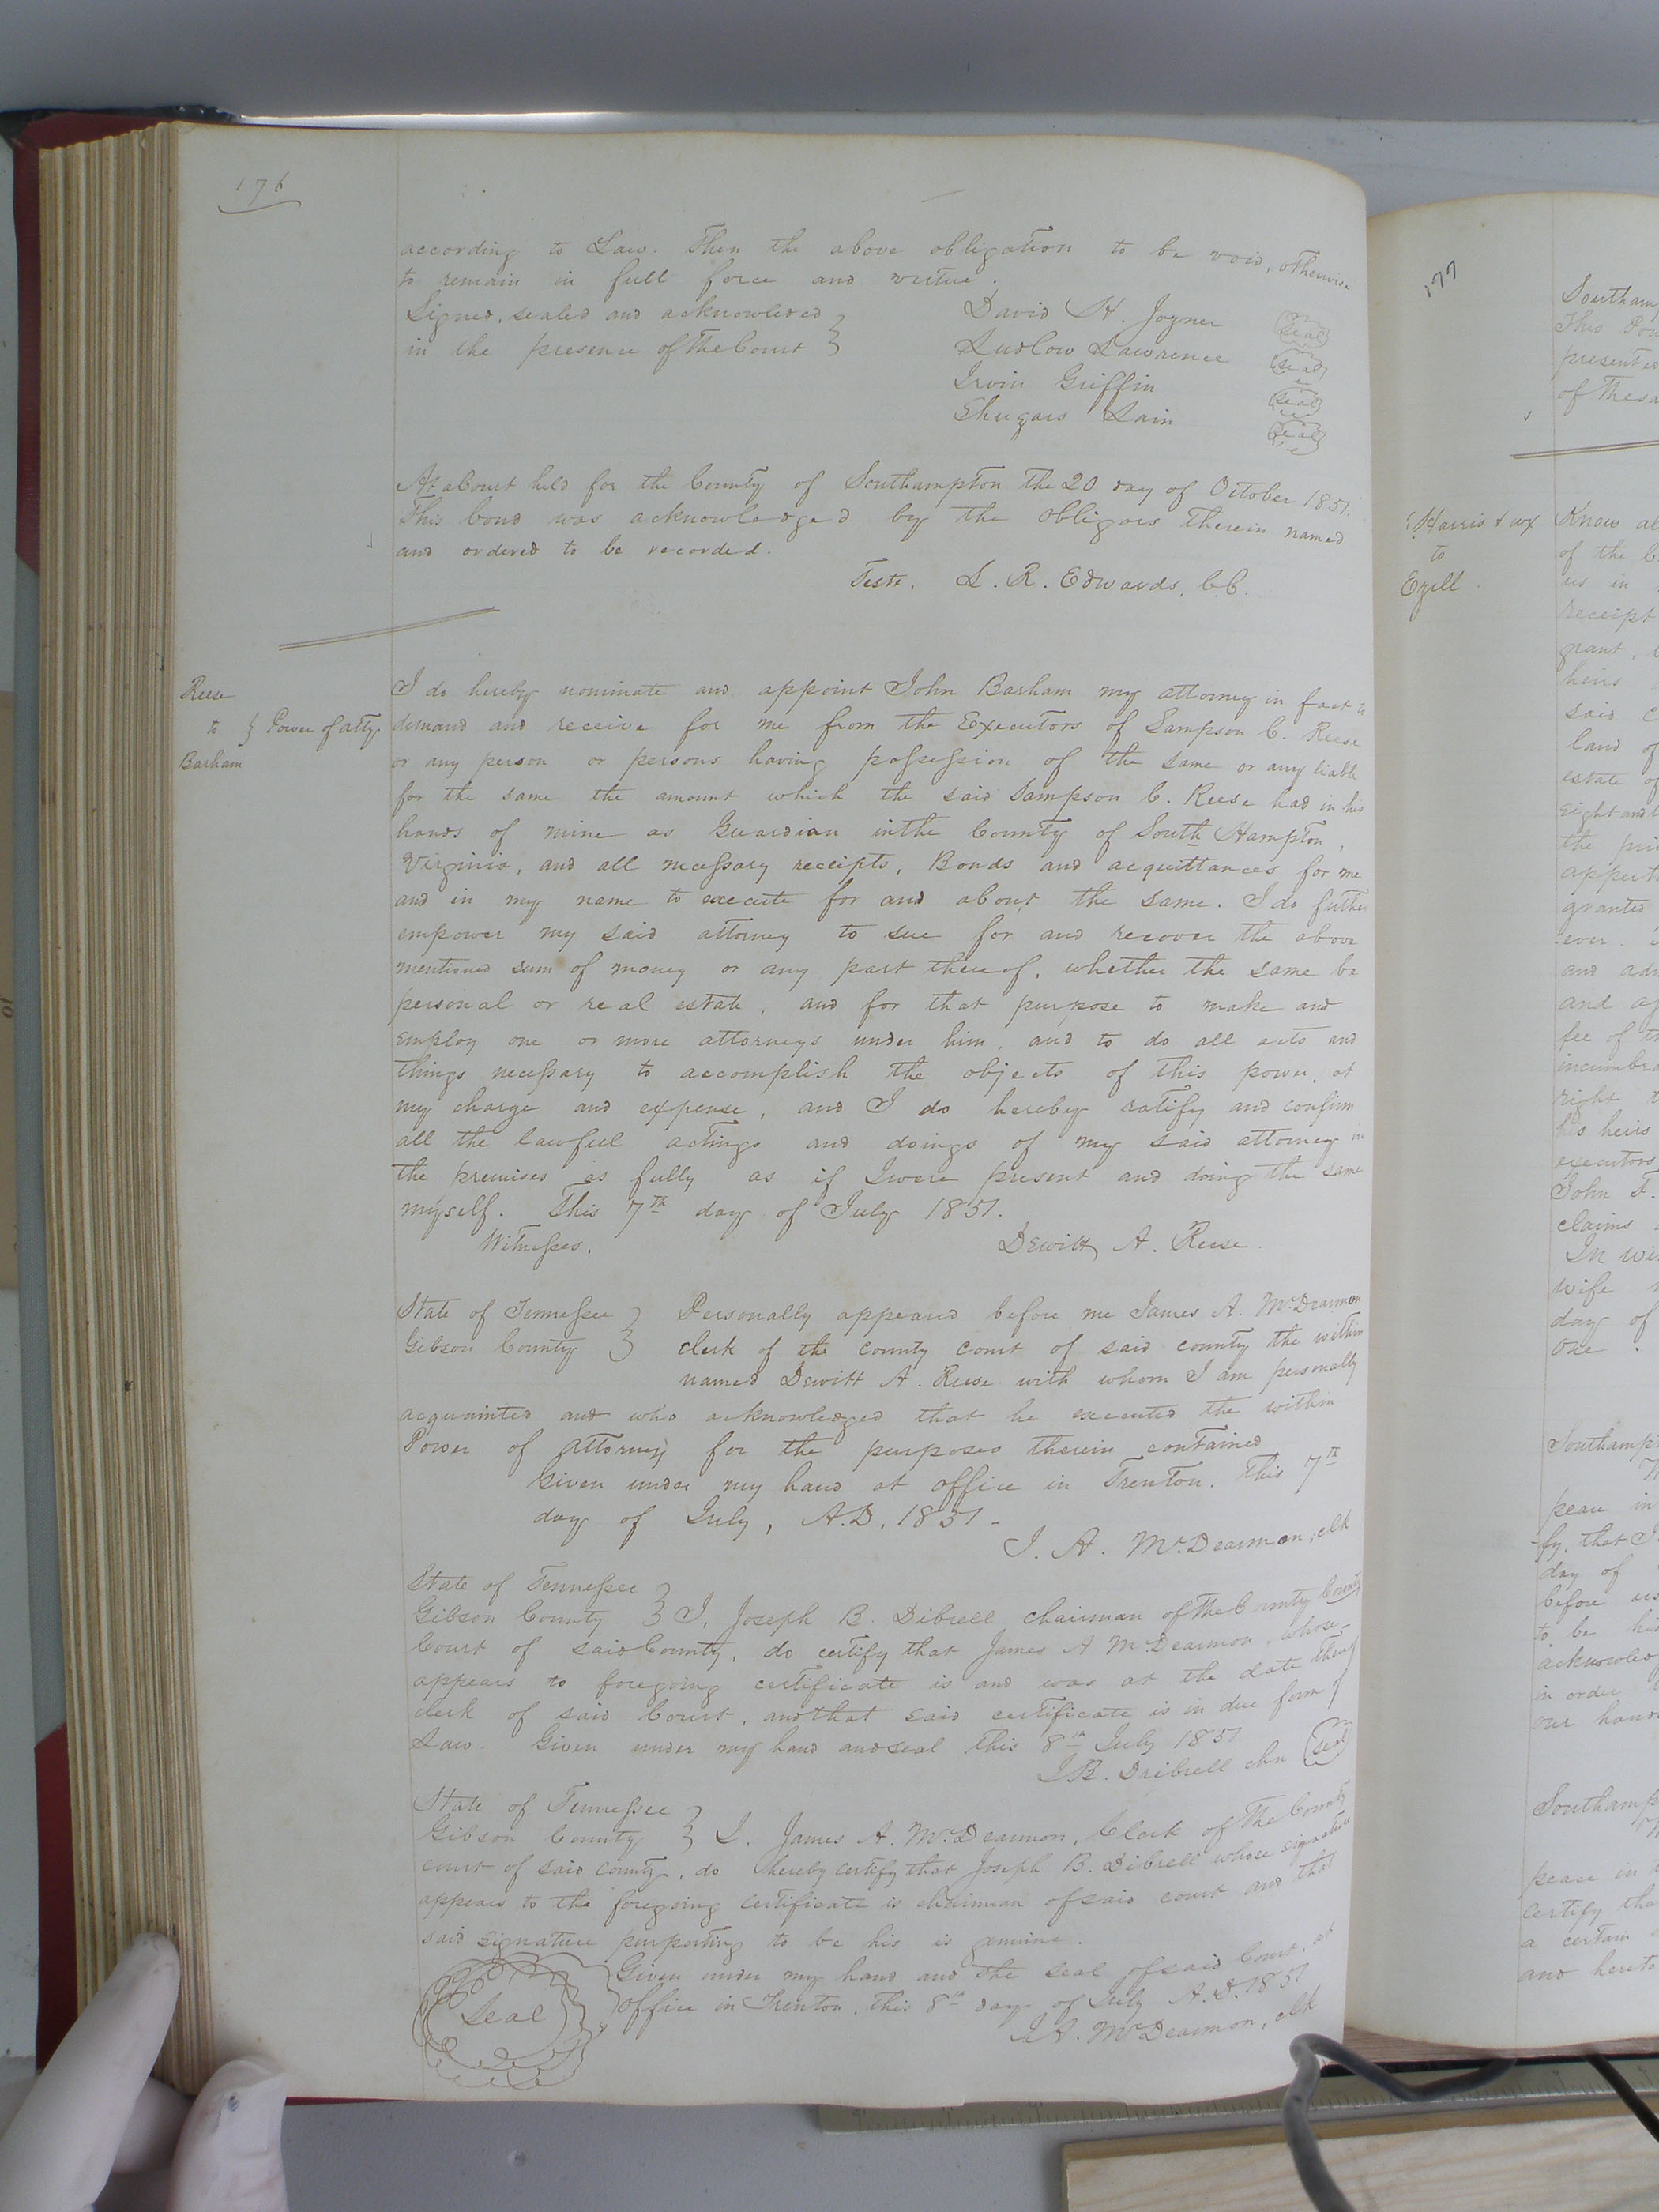 176
according to Law. Then the above obligation to be void, otherwise
to remain in full force and virtue.
Signed, sealed and acknowledged } David H. Joyner seal
in the presence of the Court } Ludlow Lawrence seal
Irvin Griffin seal
Shugars Lain seal
At a Court held for the County of Southampton the 20 day of October 1851.
This bond was acknowledged by the obligors therein named
and ordered to be recorded.
Teste. L. R. Edwards, C.C.
Reese
to } Power of atty.
Barham
I do hereby nominate and appoint John Barham my attorney in fact to
demand and receive for me from the Executors of Sampson C. Reese
or any person or persons having possession of the same or any liable
for the same the amount which the said Sampson C. Reese had in his
hands of mine as Guardian in the County of South Hampton,
Virginia, and all necessary receipts, Bonds and acquittances for me
and in my name to execute for and about the same. I do further
empower my said attorney to sue for and recover the above
mentioned sum of money or any part thereof, whether the same be
personal or real estate, and for that purpose to make and
employ one or more attorneys under him, and to do all acts and
things necessary to accomplish the objects of this power, at
my charge and expense, and I do hereby ratify and confirm
all the lawful actings and doings of my said attorney in
the premises as fully as if I were present and doing the same
myself. This 7th day of July 1851.
Witnesses. Dewitt A. Reese.
State of Tennessee } Personally appeared before me James A. McDearmon
Gibson County } clerk of the county court of said county the within
named Dewitt A. Reese with whom I am personally
acquainted and who acknowledged that he executed the within
Power of Attorney for the purposes therein contained
Given under my hand at office in Trenton. This 7th
day of July, A.D. 1851 -
J. A. McDearmon, clk
State of Tennessee }
Gibson County } I, Joseph B. Dibrell chairman of the County County
Court of said County, do certify that James A McDearmon, whose
appears to foregoing certificate is and was at the date thereof
clerk of said Court, and that said certificate is in due form of
Law. Given under my hand and seal this 8th July 1851
J B. Dribrell chn seal
State of Tennessee }
Gibson County } I. James A. McDearmon, Clerk of the County
court of said county, do hereby certify that Joseph B. Dibrell whose signature
appears to the foregoing certificate is chairman of said court and that
said signature purporting to be his is genuine.
Seal } Given under my hand and the seal of said Court, at
office in Trenton, this 8th day of July A.D. 1851
J A. McDearmon, clk
177
Southamp
This Pow
presented
of the sa
Harris & wx
to
Ezell
Know al
of the C
us in
receipt
grant,
heirs
said
land of
estate of
right and
the pri
appert
granted
ever.
and adm
and ag
fee of
incumbra
right
his heirs
executors
John F.
claims
In wit
wife
day of
one.
Southamp
peace in
fy, that I
day of
before us
to be his
acknowled
in order
our hands
Southamp
peace in
certify tha
a certain
and hereto